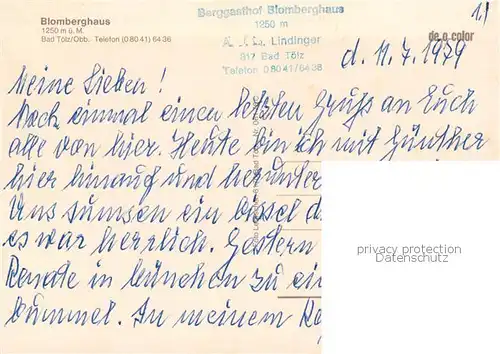 Blomberghaus
1250 m ü. M.
Bad Tölz/Obb. Telefon (0 80 41) 64 36
Berggasthof Blomberghaus
1250 m
Lindinger
817 Bad Tölz
Telefon 0 80 41/64 36
1.)
de o color
d. 11.7.1979
Meine Lieben!
Noch einmal einen letzten Gruß an Euch
alle von hier. Heute bin ich mit Günther
hier hinauf und herunter
Uns sumsen ein bissel
es war herrlich. Gestern
Renate in München zu
bummel. In meinem
privacy protection
Datenschutz